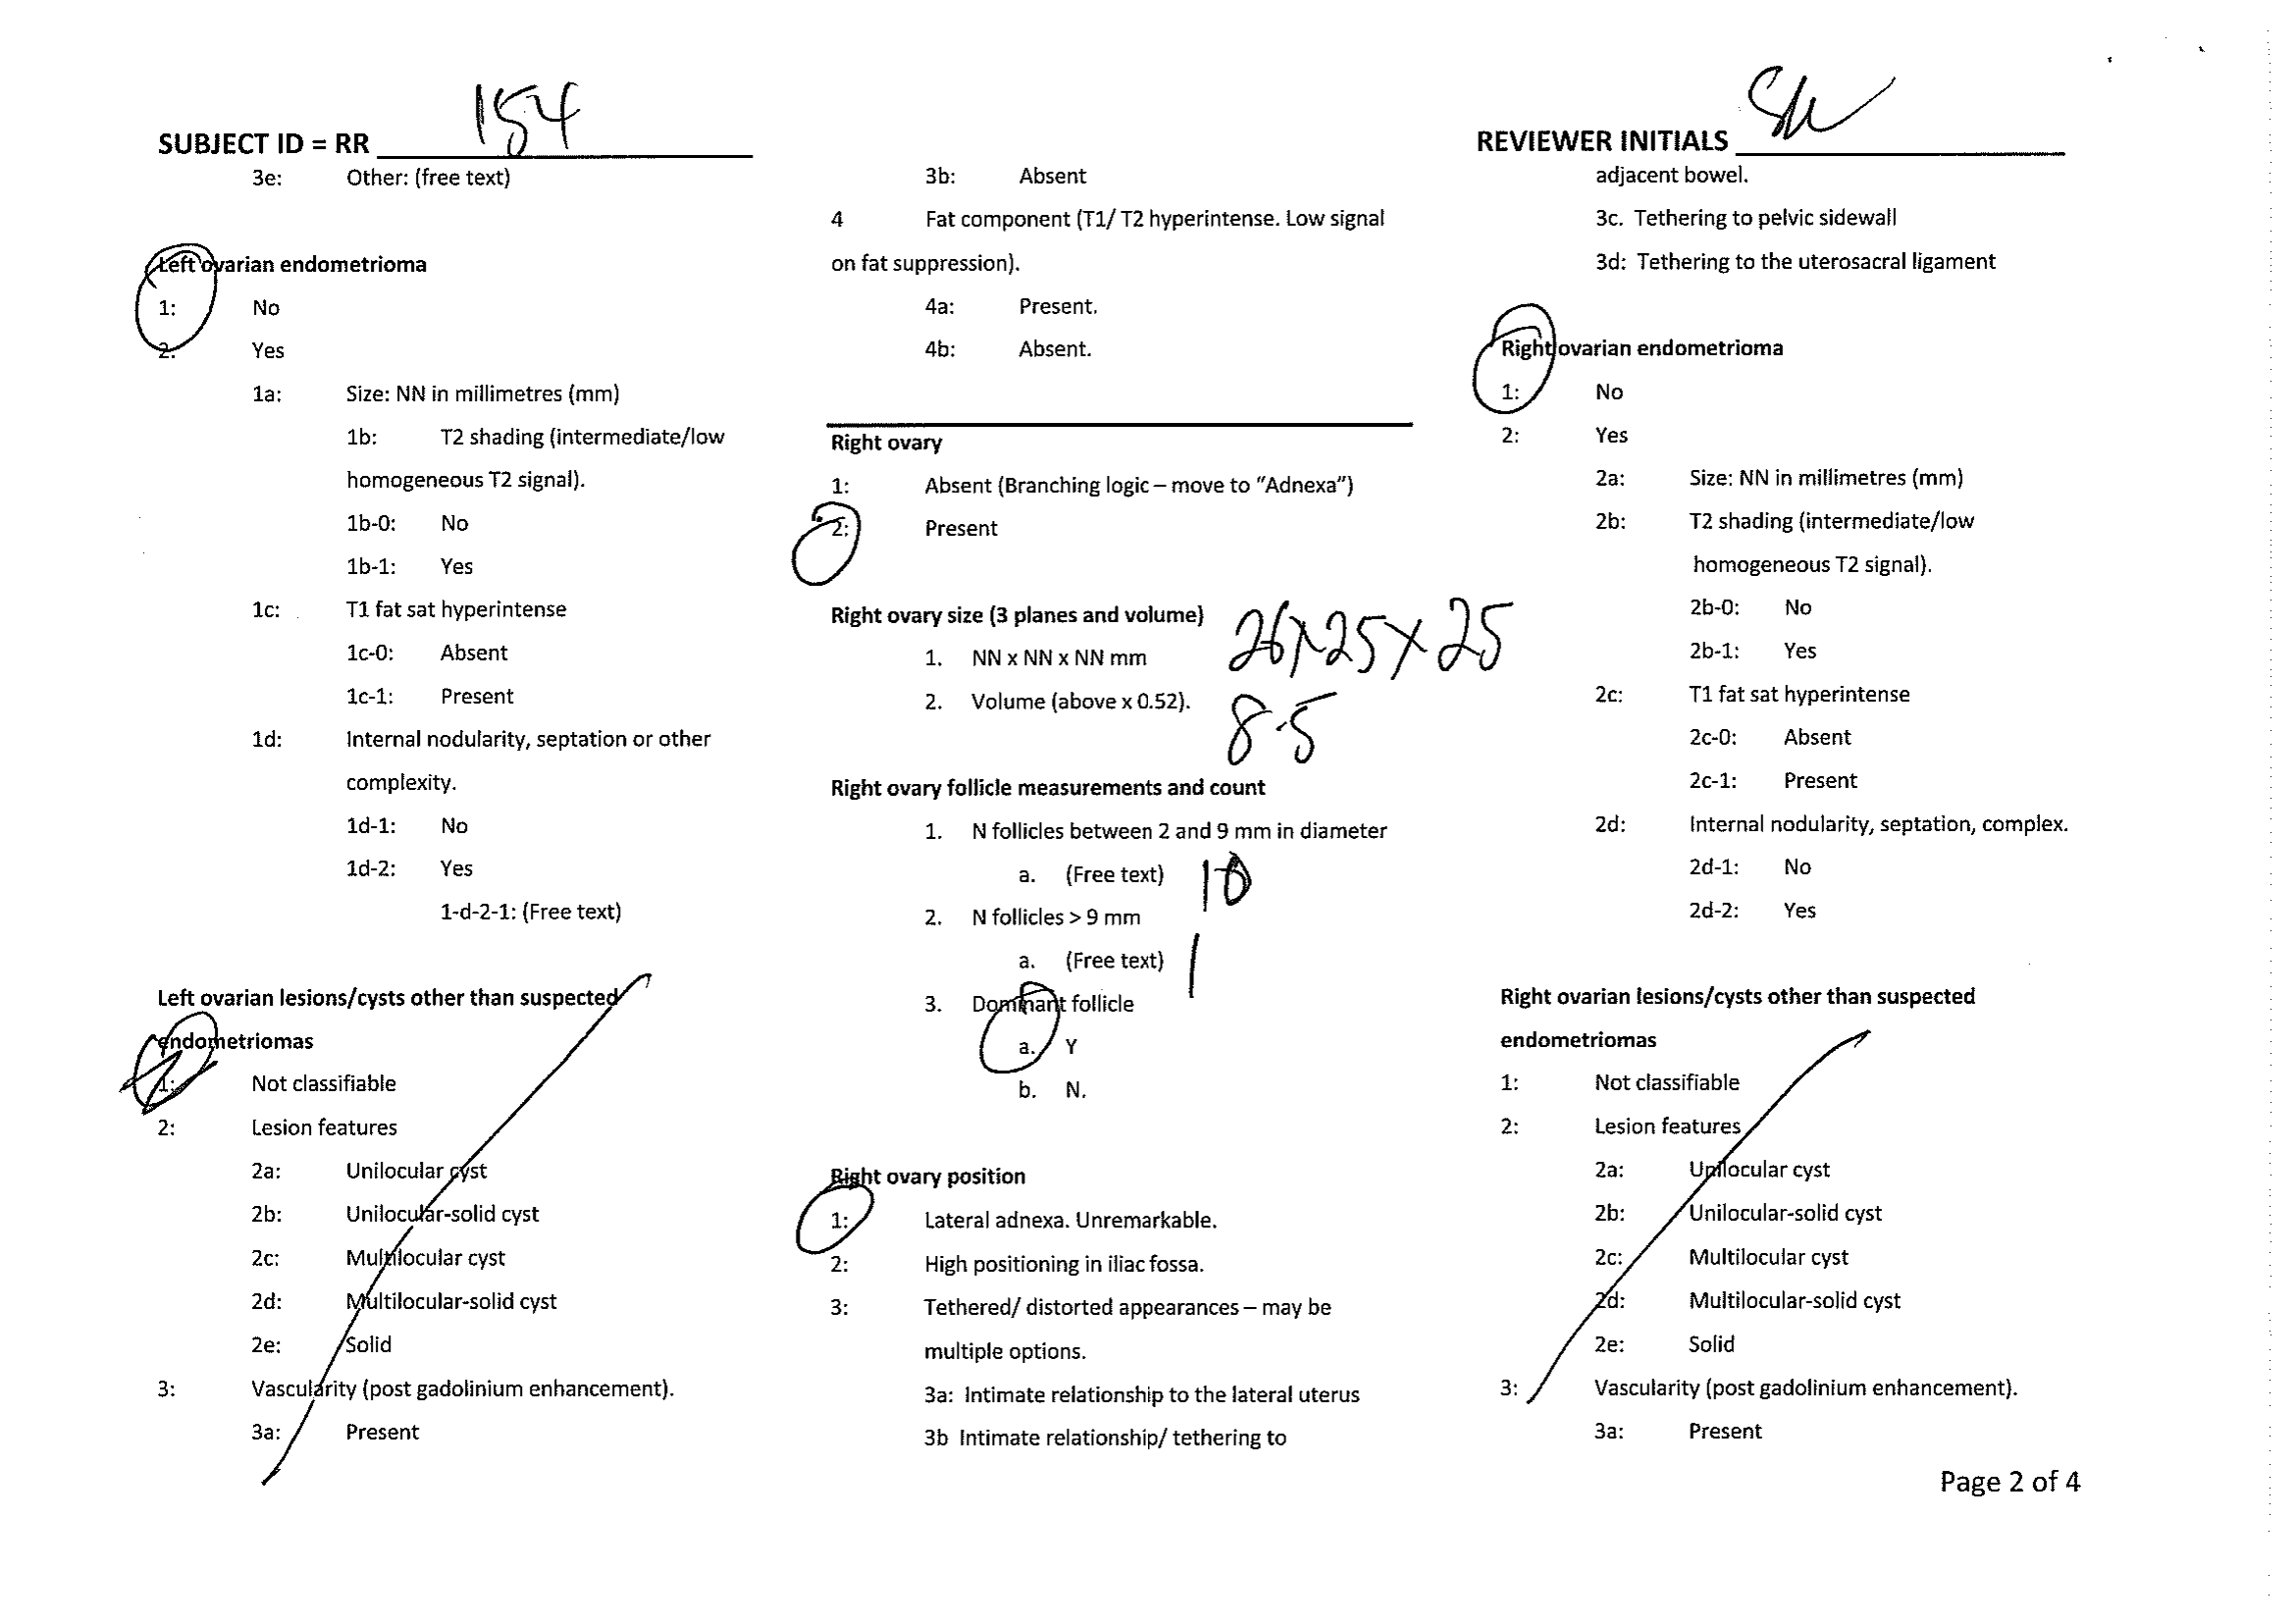 SUBJECT ID = RR 154
3e: Other: (free text)
Left ovarian endometrioma
1: No
2: Yes
1a: Size: NN in millimetres (mm)
1b: T2 shading (intermediate/low
homogeneous T2 signal).
1b-0: No
1b-1: Yes
1c: T1 fat sat hyperintense
1c-0: Absent
1c-1: Present
1d: Internal nodularity, septation or other
complexity.
1d-1: No
1d-2: Yes
1-d-2-1: (Free text)
Left ovarian lesions/cysts other than suspected
endometriomas
1: Not classifiable
2: Lesion features
2a: Unilocular cyst
2b: Unilocular-solid cyst
2c: Multilocular cyst
2d: Multilocular-solid cyst
2e: Solid
3: Vascularity (post gadolinium enhancement).
3a: Present
3b: Absent
4 Fat component (T1/ T2 hyperintense. Low signal
on fat suppression).
4a: Present.
4b: Absent.
Right ovary
1: Absent (Branching logic – move to “Adnexa”)
2: Present
Right ovary size (3 planes and volume)
1. NN x NN x NN mm 26x25x25
2. Volume (above x 0.52). 8.5
Right ovary follicle measurements and count
1. N follicles between 2 and 9 mm in diameter
a. (Free text) 10
2. N follicles > 9 mm
a. (Free text) 1
3. Dominant follicle
a. Y
b. N.
Right ovary position
1: Lateral adnexa. Unremarkable.
2: High positioning in iliac fossa.
3: Tethered/ distorted appearances – may be
multiple options.
3a: Intimate relationship to the lateral uterus
3b Intimate relationship/ tethering to
REVIEWER INITIALS
adjacent bowel.
3c. Tethering to pelvic sidewall
3d: Tethering to the uterosacral ligament
Right ovarian endometrioma
1: No
2: Yes
2a: Size: NN in millimetres (mm)
2b: T2 shading (intermediate/low
homogeneous T2 signal).
2b-0: No
2b-1: Yes
2c: T1 fat sat hyperintense
2c-0: Absent
2c-1: Present
2d: Internal nodularity, septation, complex.
2d-1: No
2d-2: Yes
Right ovarian lesions/cysts other than suspected
endometriomas
1: Not classifiable
2: Lesion features
2a: Unilocular cyst
2b: Unilocular-solid cyst
2c: Multilocular cyst
2d: Multilocular-solid cyst
2e: Solid
3: Vascularity (post gadolinium enhancement).
3a: Present
Page 2 of 4